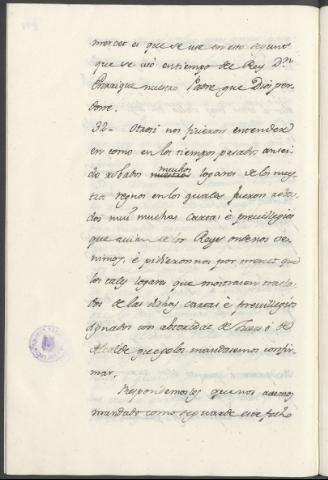 merced es que se use en esto segun
que se usó en tiempo de Rey Dn
Enrrique nuestro Padre que Dios per-
done.
32. Otrosi nos ficieron entender
en como en los tiempos pasados an sei-
do robados muchos logares de los nues-
tros regnos en los quales fueron roba-
dos muchas cartas é previllegios
que avian de los Reyes onde nos ve-
nimos, é pidieronnos por merced que
los tales logares que mostrasen trasla-
dos de las dichas cartas é previllegios
signados con abtoridat de Juez ó de
Alcalde que gelos mandasemos confir-
mar.
Respondemosles que nos avemos
mandado como se guarde este fecho